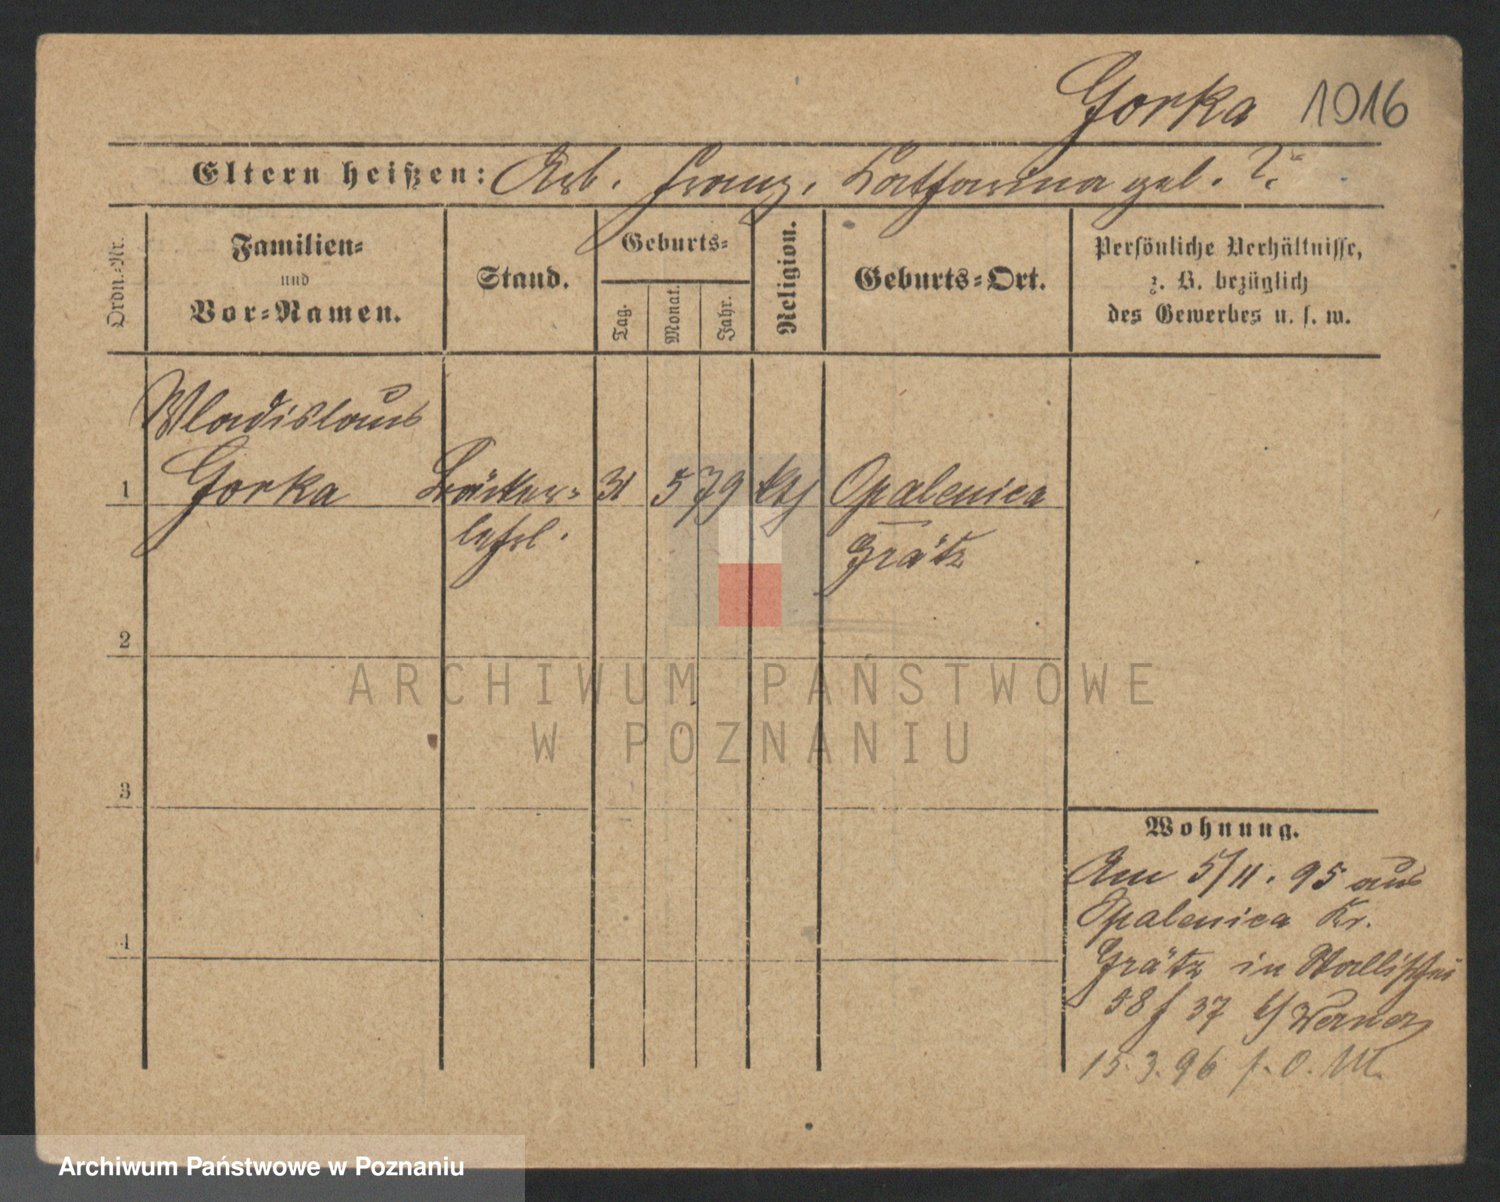 Gorka 1016
Eltern heißen: Arb. Franz, Katharina geb. ?.
Ordn.-Nr.
Familien-
und
Vor-Namen.
Stand.
Geburts-
Tag.
Monat.
Jahr.
Religion.
Geburts-Ort.
Persönliche Verhältnisse,
z. B. bezüglich
des Gewerbes u. s. w.
Wladislaus
1 Gorka Bäcker- 31 5 79 kth Opalenica
lehrl. Grätz
2
3
4
ARCHIWUM PAŃSTWOWE
W POZNANIU
Wohnung.
Am 5/11. 95 aus
Opalenica Kr.
Grätz in Wallischei
58 f 37 b/ Werner
15.3.96 f. O. M.
Archiwum Państwowe w Poznaniu